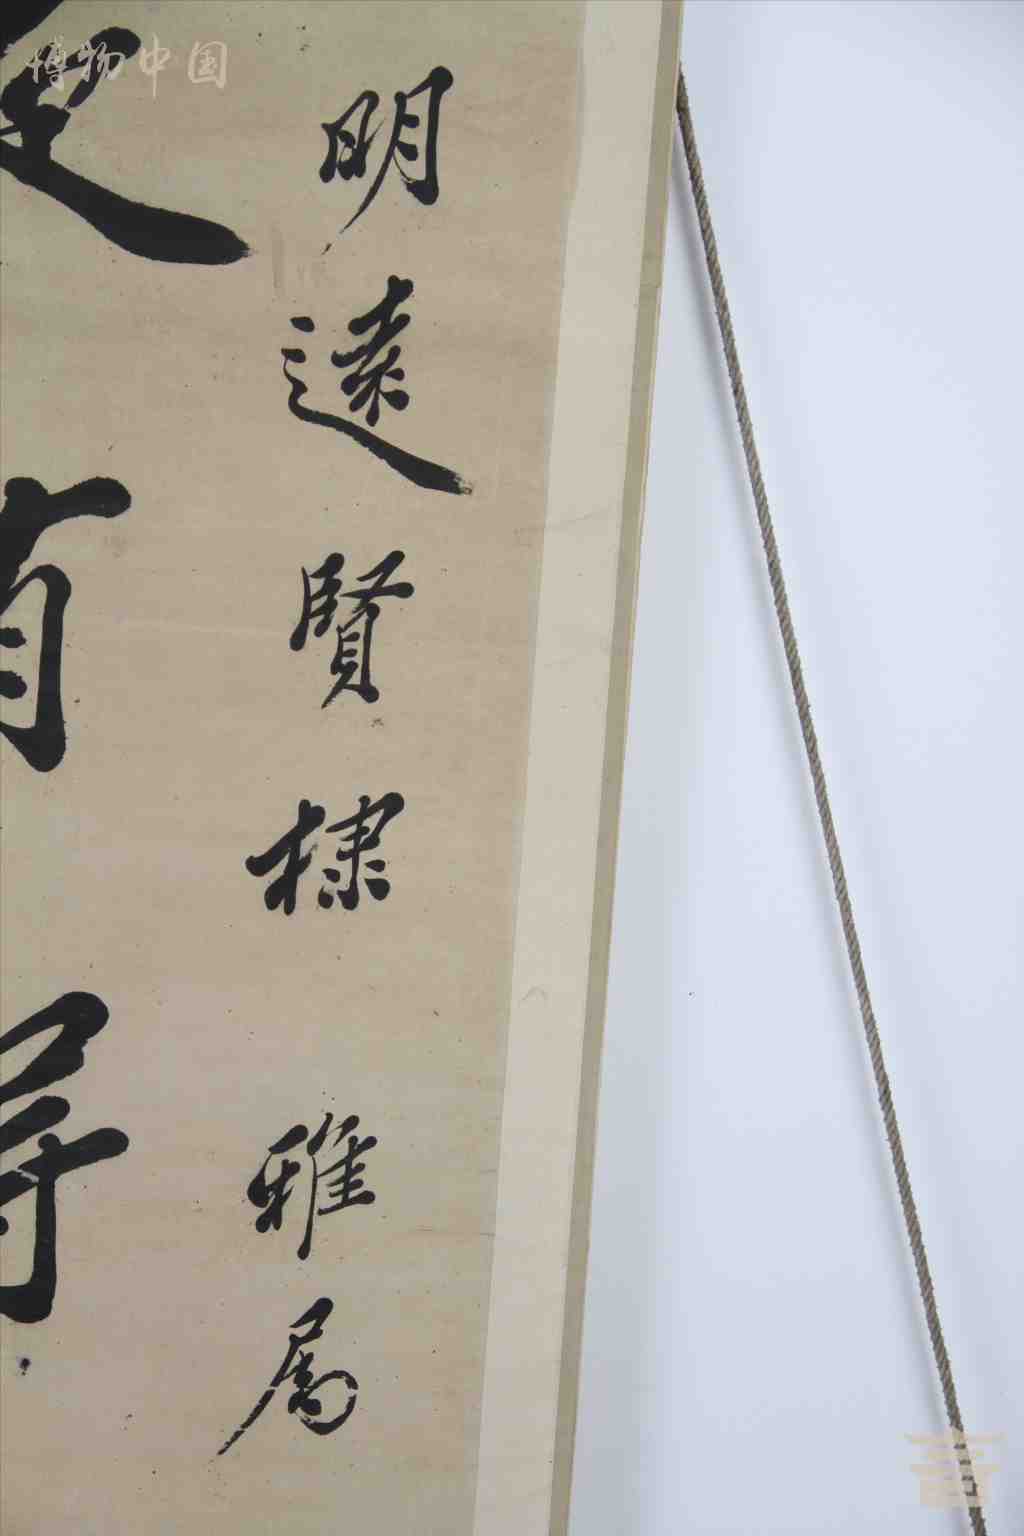 博物中国
明遠賢棣 雅属
有